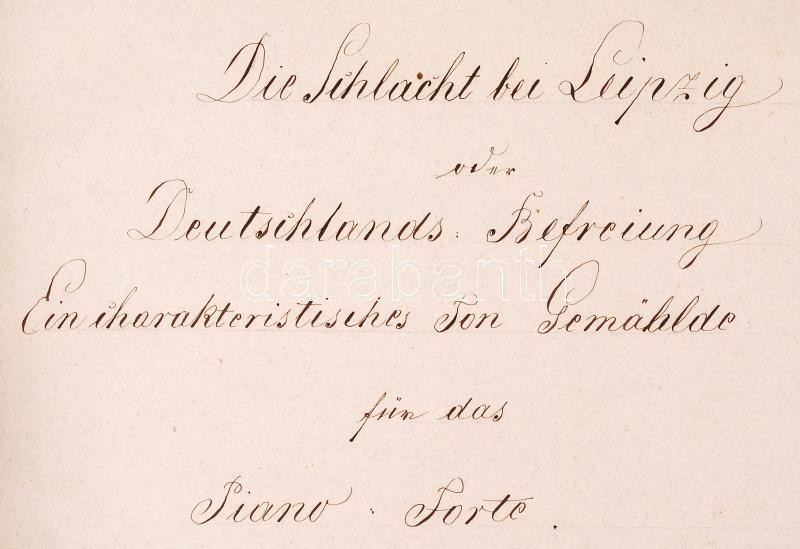 Die Schlacht bei Leipzig
oder
Deutschlands : Befreiung
darabanth
Ein charakteristisches Ton Gemählde
für das
Piano : Forte .